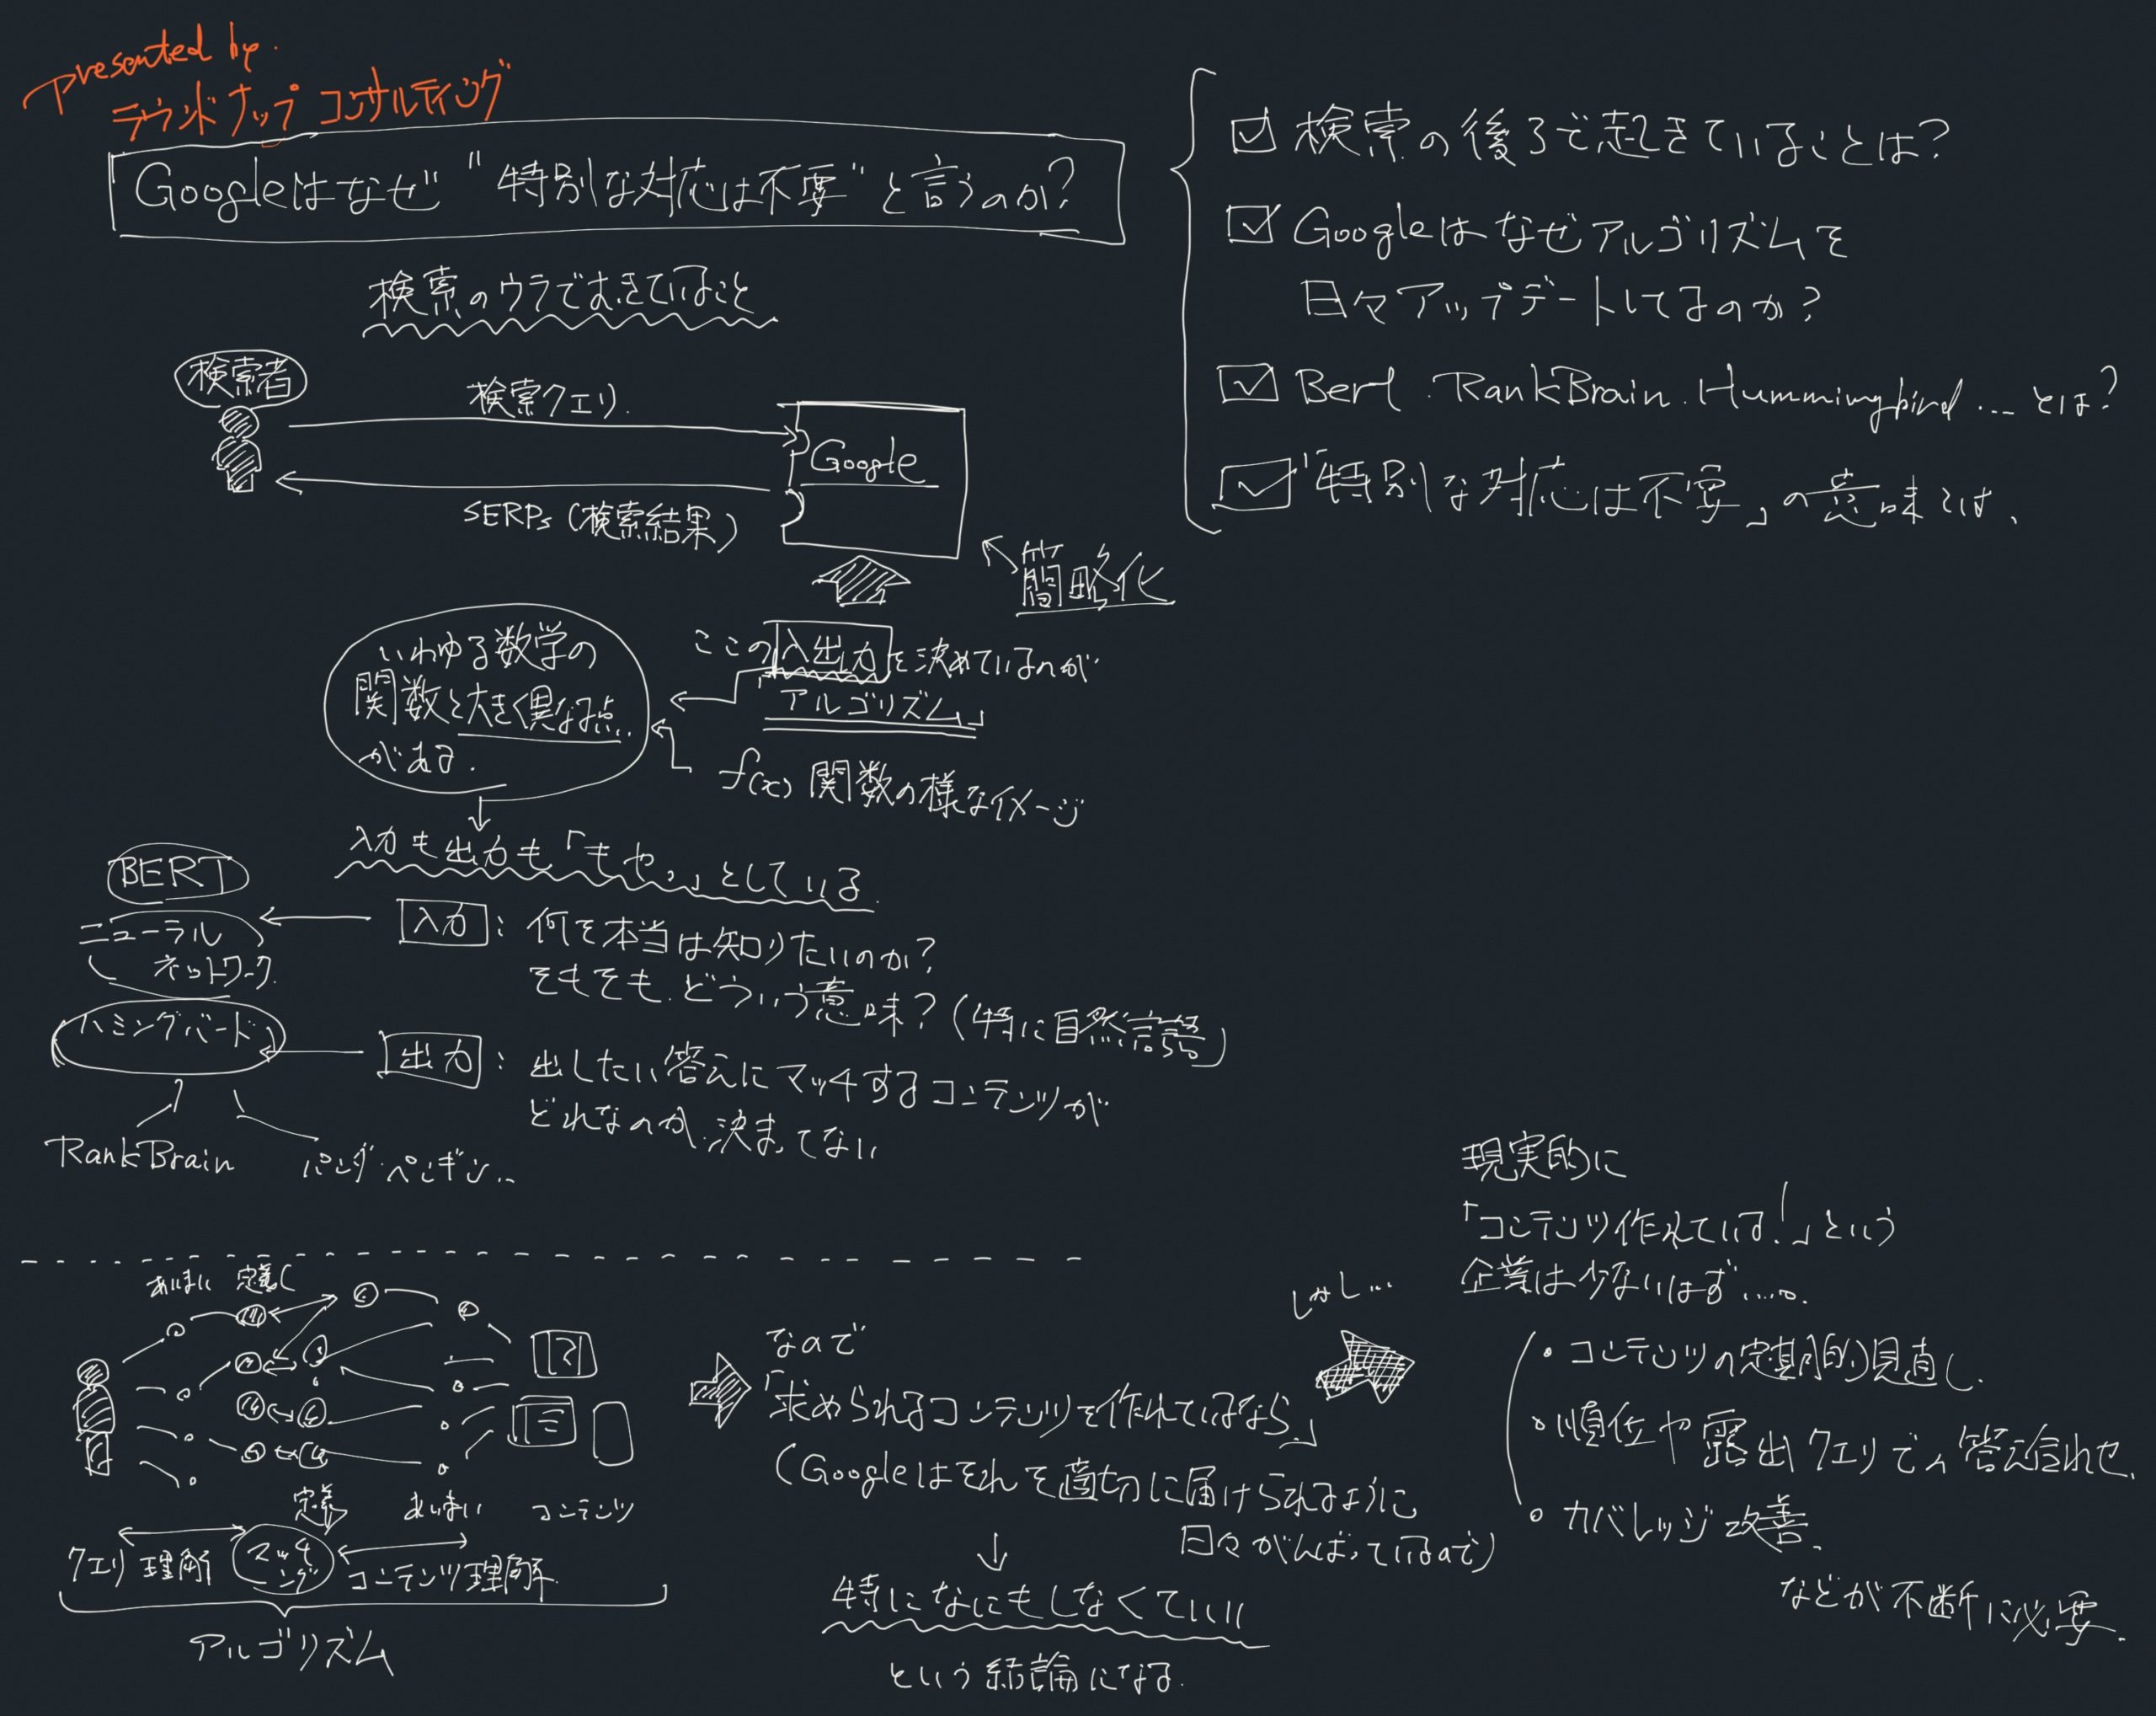 Presented by.
ラウンドナップ コンサルティング
Googleはなぜ "特別な対応は不要" と言うのか?
検索のウラでおきていること
検索者
検索クエリ.
Google
SERPs (検索結果)
簡略化
ここの入出力を決めているのが
「アルゴリズム」
f(x) 関数の様なイメージ
いわゆる数学の
関数と大きく異なる点
がある.
入力も出力も「もやっ」としている.
BERT
ニューラル
ネットワーク
ハミングバード
RankBrain
パンダ・ペンギン..
入力 : 何を本当は知りたいのか?
そもそも、どういう意味? (特に自然言語)
出力 : 出したい答えにマッチするコンテンツが
どれなのか決まってない
☑ 検索の後ろで起きていることは?
☑ Googleは なぜアルゴリズムを
日々アップデートしてるのか?
☑ Bert . RankBrain . Hummingbird .... とは?
☑「特別な対応は不要」の意味とは、
あいまい 定義
定義
あいまい
コンテンツ
クエリ理解
マッチング
コンテンツ理解.
アルゴリズム
なので
「求められるコンテンツを作れているなら」
(Googleはそれを適切に届けられるように
日々がんばっているので)
↓
特になにもしなくていい
という結論になる.
しかし...
現実的に
「コンテンツ作れている!」という
企業は少ないはず.....。
・コンテンツの定期的見直し.
・順位や露出クエリで答え合わせ.
・カバレッジ改善.
などが不断に必要.